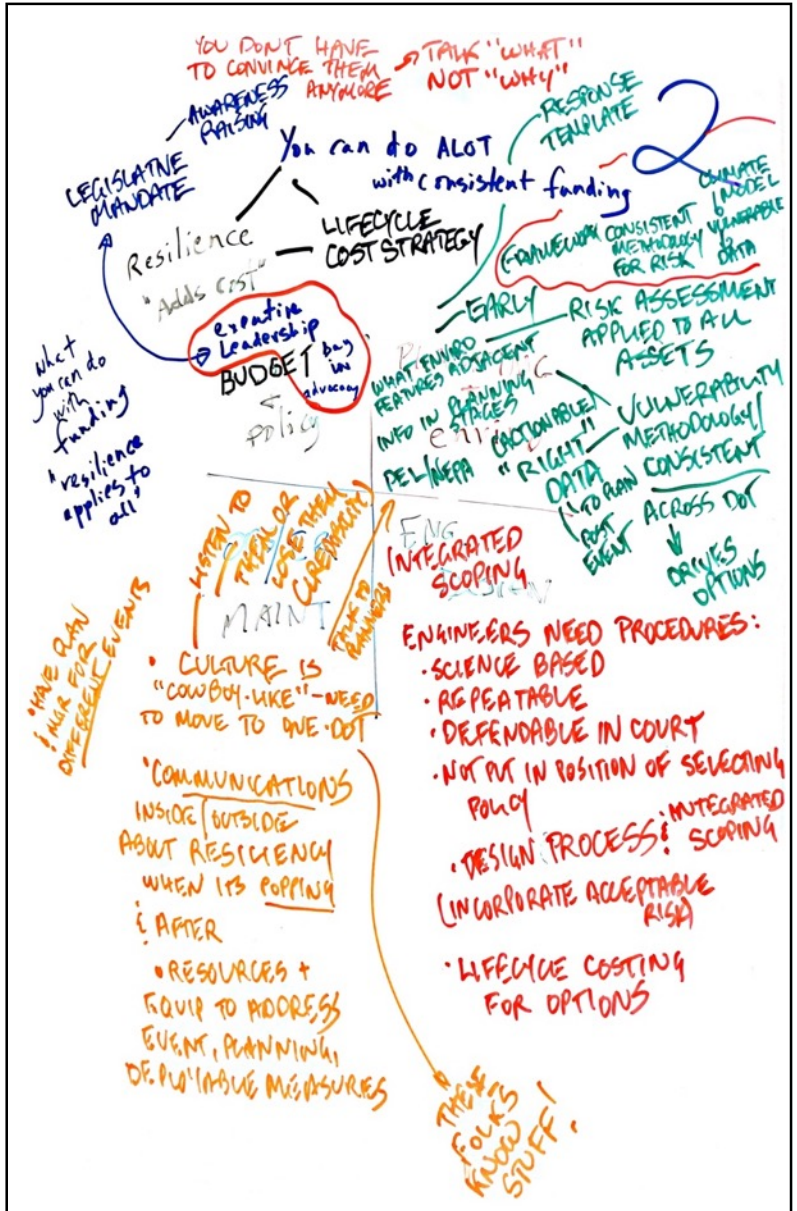 YOU DON'T HAVE
TO CONVINCE THEM
ANYMORE
TALK "WHAT"
NOT "WHY"
AWARENESS
RAISING
LEGISLATIVE
MANDATE
You can do ALOT
with consistent funding
RESPONSE
TEMPLATE
2
Resilience
"Adds Cost"
LIFECYCLE
COST STRATEGY
FRAMEWORK
CONSISTENT
METHODOLOGY
FOR RISK
CLIMATE
MODEL
VULNERABLE
DATA
executive
leadership
BUDGET
buy
in
advocacy
policy
what
you can do
with
funding
"resilience
applies to
all"
EARLY
RISK ASSESSMENT
APPLIED TO ALL
ASSETS
WHAT ENVIRO
FEATURES ADJACENT
INFO IN PLANNING
STAGES
PEL/NEPA
(ACTIONABLE/
"RIGHT"
DATA
TO PLAN
POST
EVENT
VULNERABILITY
METHODOLOGY/
CONSISTENT
ACROSS DOT
DRIVES
OPTIONS
LISTEN TO
THEM OR
LOSE THEM
(CREDIBILITY)
TALK TO
PLANNERS
MAINT
• HAVE PLAN
& MGR FOR
DIFFERENT EVENTS
• CULTURE IS
"COWBOY-LIKE" - NEED
TO MOVE TO ONE-DOT
• COMMUNICATIONS
INSIDE/OUTSIDE
ABOUT RESILIENCY
WHEN ITS POPPING
& AFTER
• RESOURCES +
EQUIP TO ADDRESS
EVENT, PLANNING,
DEPLOYABLE MEASURES
THESE
FOLKS
KNOW
STUFF!
ENG
INTEGRATED
SCOPING
ENGINEERS NEED PROCEDURES:
• SCIENCE BASED
• REPEATABLE
• DEFENDABLE IN COURT
• NOT PUT IN POSITION OF SELECTING
POLICY
• DESIGN PROCESS & INTEGRATED
SCOPING
(INCORPORATE ACCEPTABLE
RISK)
• LIFECYCLE COSTING
FOR OPTIONS